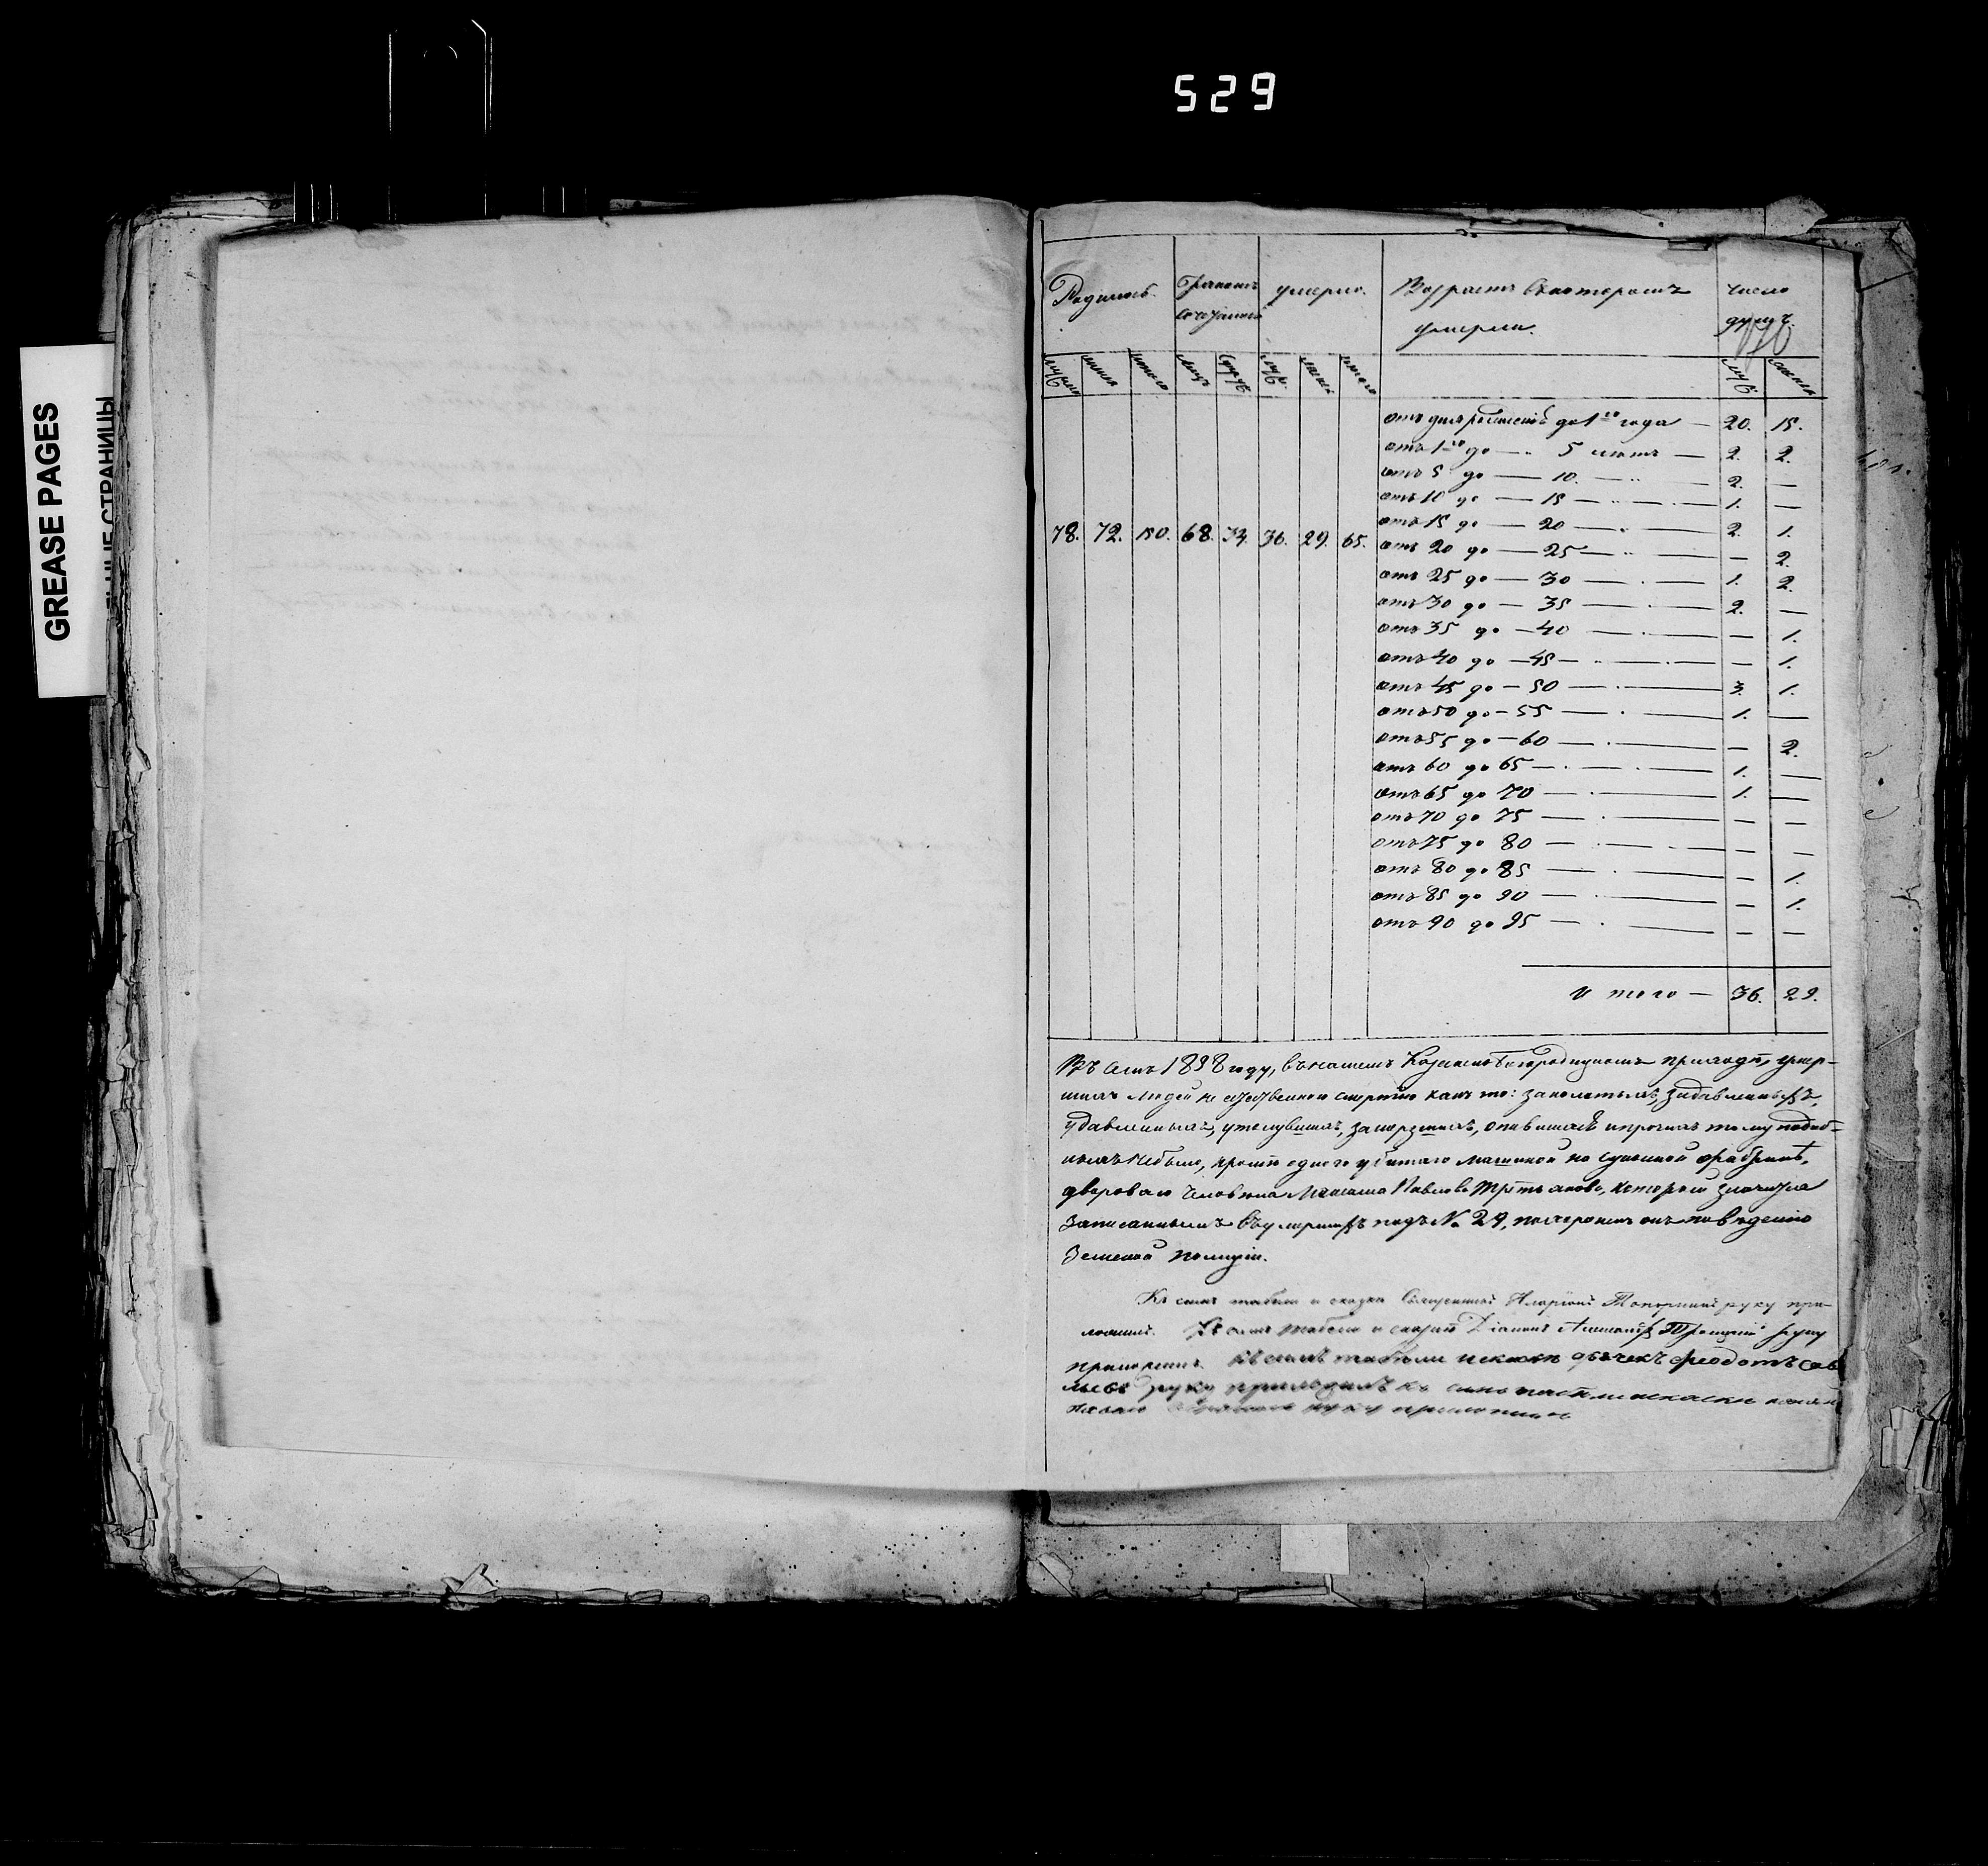 529
GREASE PAGES
СТРАНИЦЫ
Родилось. Бракомъ умерло. Возрастъ въ которомъ число
сочетаннo умерли. душъ.
муж. женск итого лицъ супр. муж. женск итого муж. женск
отъ дня рожденія до 1го года — 20. 15.
отъ 1го до — 5 летъ — 2. 2.
отъ 5 до — 10. — 2. —
отъ 10 до — 15 — 1. —
отъ 15 до — 20 — 2. 1.
78. 72. 150. 68. 34. 36. 29. 65.
отъ 20 до — 25 — — 2.
отъ 25 до — 30 — 1. 2.
отъ 30 до — 35 — 2. —
отъ 35 до — 40 — — 1.
отъ 40 до — 45 — — 1.
отъ 45 до — 50 — 3. 1.
отъ 50 до — 55 — 1. —
отъ 55 до — 60 — — 2.
отъ 60 до 65 — 1. —
отъ 65 до 70 — 1. —
отъ 70 до 75 — — —
отъ 75 до 80 — — —
отъ 80 до 85 — — 1.
отъ 85 до 90 — — 1.
отъ 90 до 95 — — —
Итого — 36. 29.
Въ семъ 1838 году, въ нашемъ Казанскобогородицкомъ приходѣ, умер-
шихъ людей не естественною смертію какъ то: заколотыхъ, задавленныхъ,
удавленныхъ, утонувшихъ, замерзшихъ, опившихся и прочихъ тому подоб-
ныхъ небыло, кромѣ одного убитаго машиной на суконной фабрикѣ,
двороваго человѣка Павлова Третьякова, которой значится
записаннымъ въ умершихъ подъ № 29, похороненъ онъ по вѣденію
Земской полиціи.
Къ симъ табели и сказки Священникъ Иларіонъ Топорнинъ руку при-
ложилъ. Къ симъ табели и сказки Діаконъ Троицкій руку
приложилъ Къ симъ табели и сказки дьячекъ Феодотъ Сав
льевъ руку приложилъ Къ симъ табели и сказки
руку приложилъ